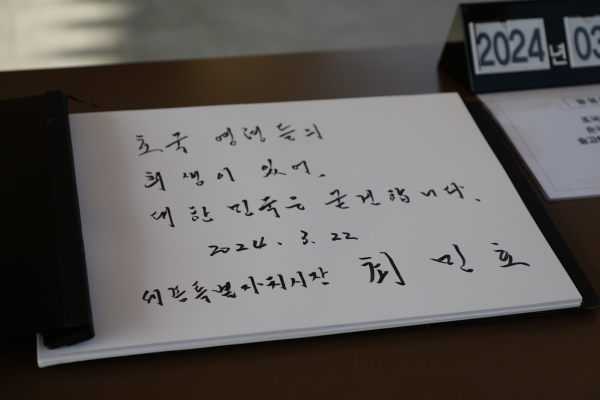 호국 영령들의
희생이 있어.
대한민국은 굳건합니다.
2024. 3. 22
세종특별자치시장 최민호
2024 년 03